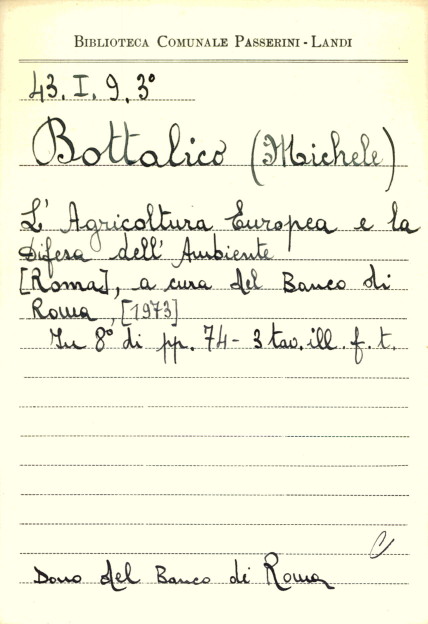 BIBLIOTECA COMUNALE PASSERINI - LANDI
43. I. 9. 3°
Bottalico (Michele)
L' Agricoltura Europea e la
Difesa dell' Ambiente
[Roma], a cura del Banco di
Roma, [1973]
In 8° di pp. 74 - 3 tav. ill. f. t.
Dono del Banco di Roma